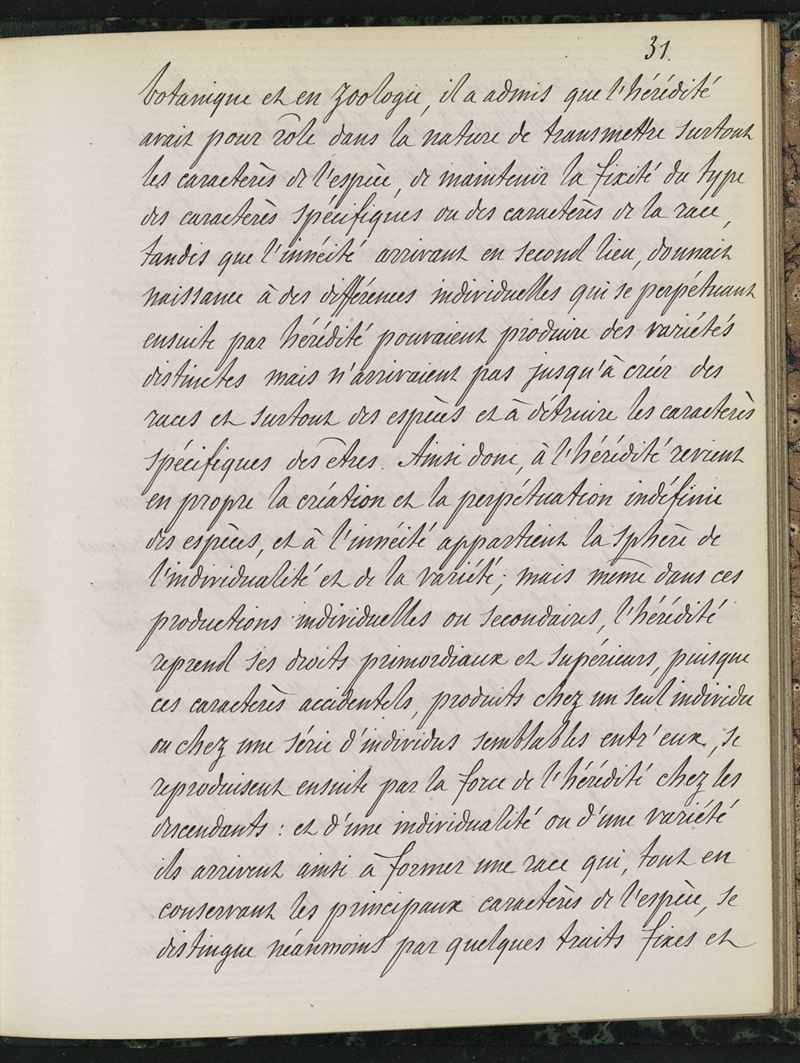 31.
botanique et en zoologie, il a admis que l'hérédité
avait pour rôle dans la nature de transmettre surtout
les caractères de l'espèce, de maintenir la fixité du type
des caractères spécifiques ou des caractères de la race,
tandis que l'innéité arrivant en second lieu, donnait
naissance à des différences individuelles qui se perpétuant
ensuite par hérédité pouvaient produire des variétés
distinctes mais n'arrivaient pas jusqu'à créer des
races et surtout des espèces et à détruire les caractères
spécifiques des êtres. Ainsi donc, à l'hérédité revient
en propre la création et la perpétuation indéfinie
des espèces, et à l'innéité appartient la sphère de
l'individualité et de la variété; mais même dans ces
productions individuelles ou secondaires, l'hérédité
reprend ses droits primordiaux et supérieurs, puisque
ces caractères accidentels, produits chez un seul individu
ou chez une série d'individus semblables entr'eux, se
reproduisent ensuite par la force de l'hérédité chez les
descendants : et d'une individualité ou d'une variété
ils arrivent ainsi à former une race qui, tout en
conservant les principaux caractères de l'espèce, se
distingue néanmoins par quelques traits fixes et